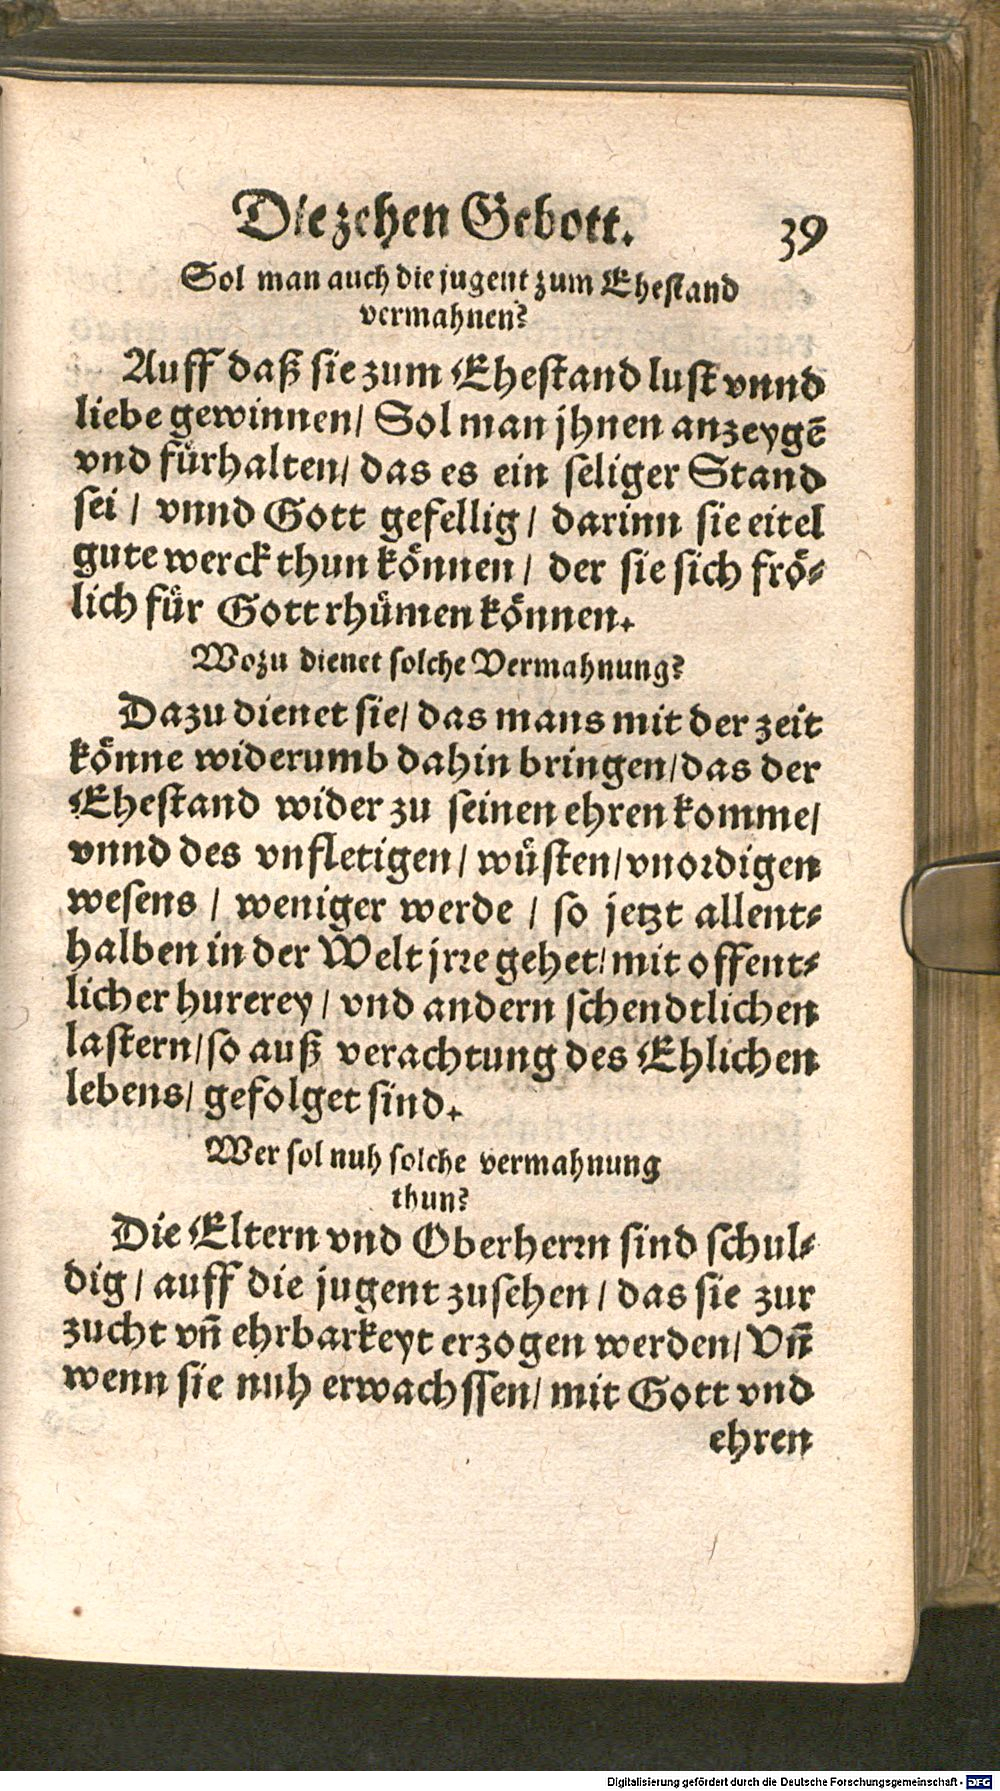 Die zehen Gebott. 39
Sol man auch die jugent zum Ehestand
vermahnen?
Auff daß sie zum Ehestand lust vnnd
liebe gewinnen/ Sol man jhnen anzeygē
vnd fürhalten/ das es ein seliger Stand
sei / vnnd Gott gefellig / darinn sie eitel
gute werck thun können / der sie sich frö⸗
lich für Gott rhümen können.
Wozu dienet solche Vermahnung?
Dazu dienet sie/ das mans mit der zeit
könne widerumb dahin bringen/das der
Ehestand wider zu seinen ehren komme/
vnnd des vnfletigen/ wüsten/vnordigen
wesens / weniger werde / so jetzt allent⸗
halben in der Welt jrre gehet/mit offent⸗
licher hurerey / vnd andern schendtlichen
lastern/so auß verachtung des Ehlichen
lebens/ gefolget sind.
Wer sol nuh solche vermahnung
thun?
Die Eltern vnd Oberherrn sind schul⸗
dig / auff die jugent zusehen / das sie zur
zucht vñ ehrbarkeyt erzogen werden/ Vñ
wenn sie nuh erwachssen/ mit Gott vnd
ehren
Digitalisierung gefördert durch die Deutsche Forschungsgemeinschaft - DFG